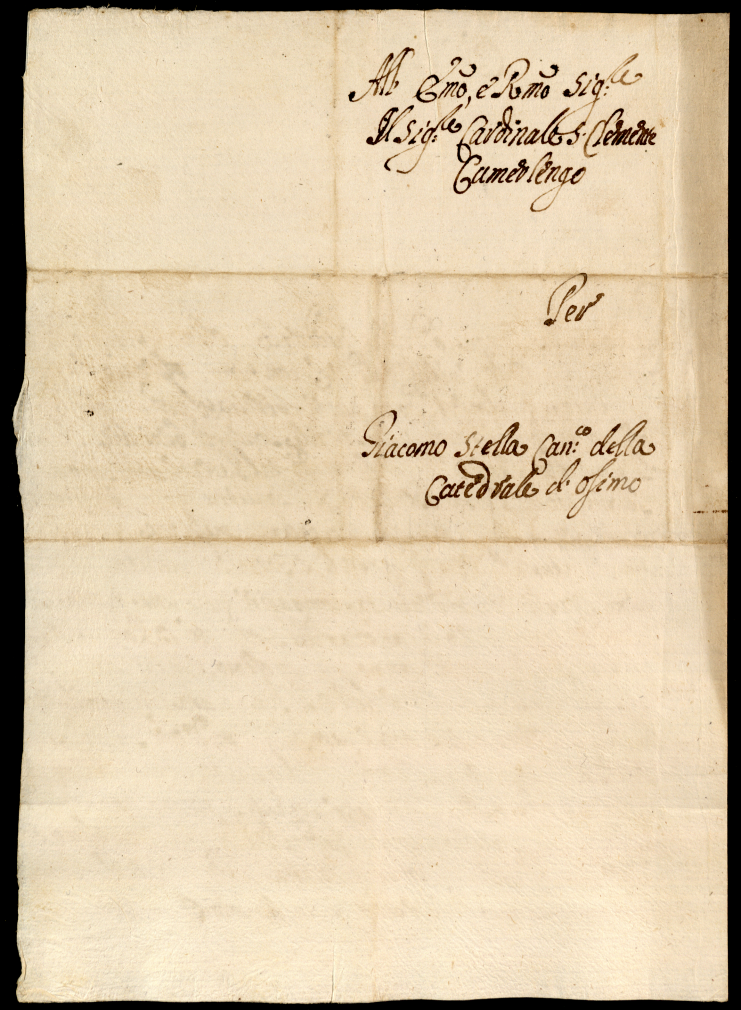 All' Emo, e Rmo Sig:re
Il Sig:re Cardinale S. Clemente
Camerlengo
Per
Giacomo Stella Can:co della
Catedrale d' Osimo